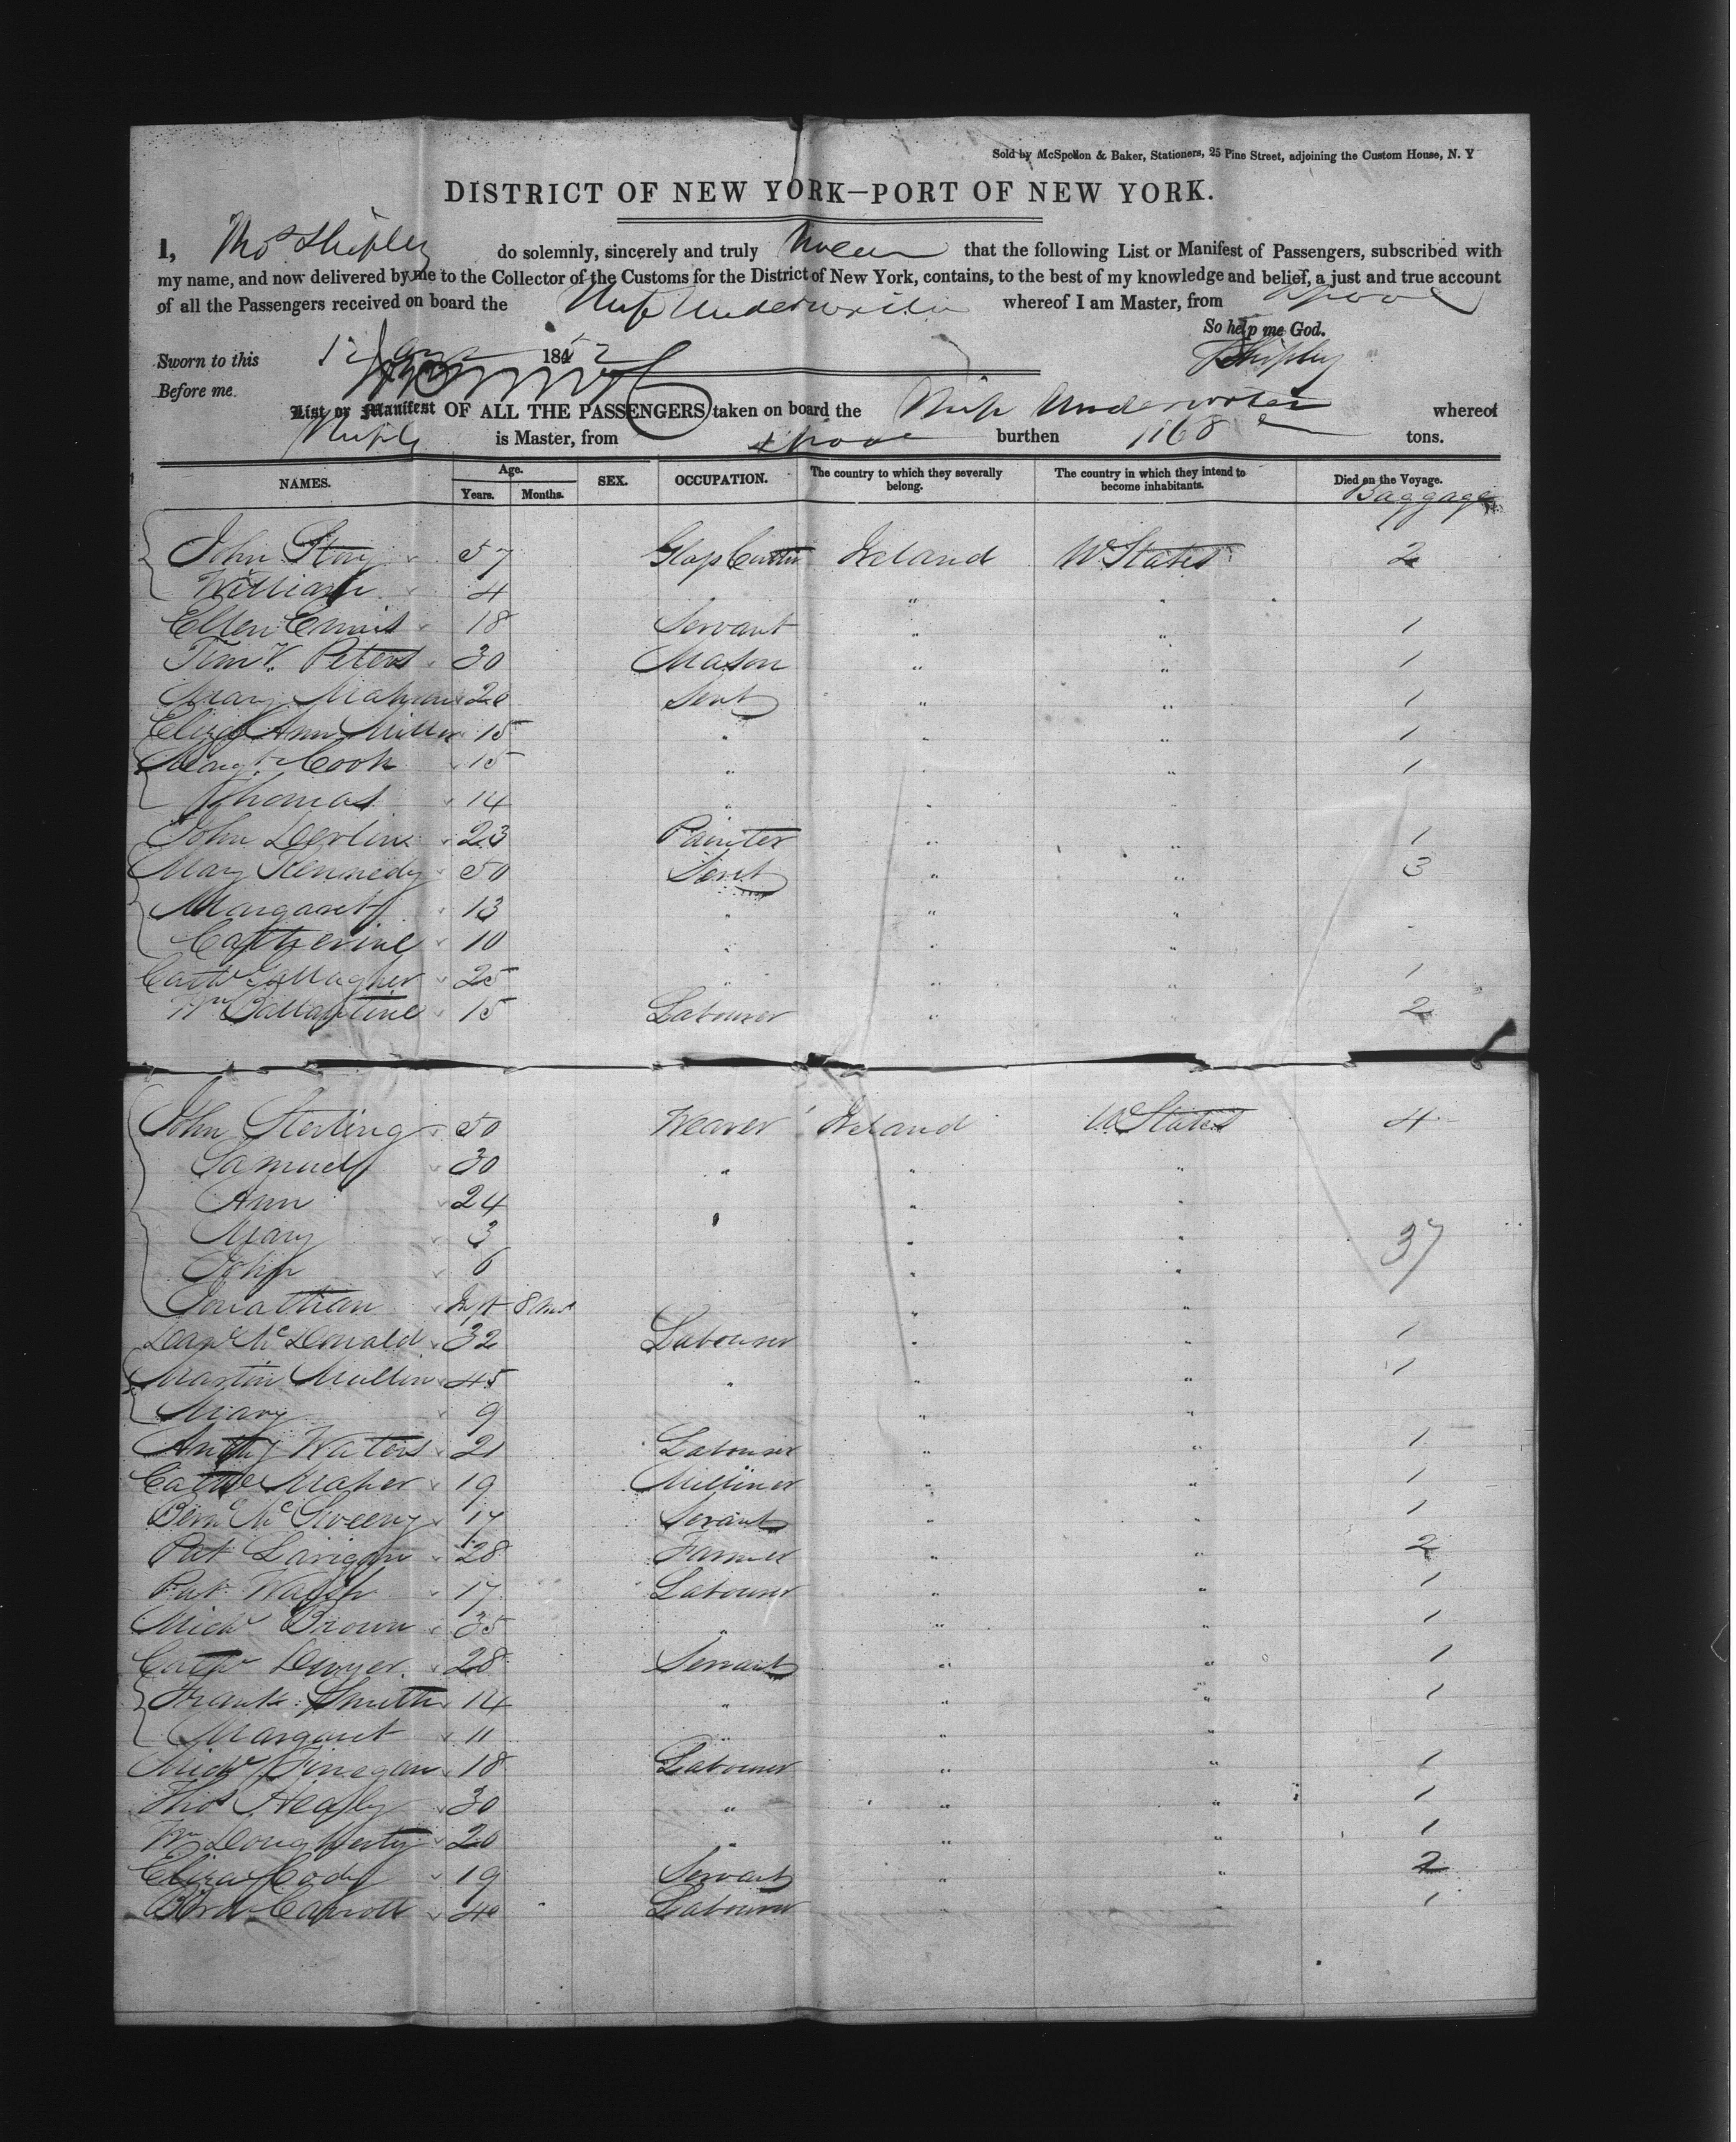 Sold by McSpedon & Baker, Stationers, 25 Pine Street, adjoining the Custom House, N. Y
DISTRICT OF NEW YORK—PORT OF NEW YORK.
I, Thos Shipley do solemnly, sincerely and truly swear that the following List or Manifest of Passengers, subscribed with
my name, and now delivered by me to the Collector of the Customs for the District of New York, contains, to the best of my knowledge and belief, a just and true account
of all the Passengers received on board the Ship Underwriter whereof I am Master, from Lpool
So help me God.
Sworn to this 12 1852 TShipley
Before me.
List or Manifest OF ALL THE PASSENGERS taken on board the Ship Underwriter whereof
Shipley is Master, from Lpool burthen 1168 tons.
NAMES. Age. Years. Months. SEX. OCCUPATION. The country to which they severally belong. The country in which they intend to become inhabitants. Died on the Voyage.
Baggage
John 57 Glass Cutter Ireland U States 2
William 4 " "
Ellen Ennis 18 Servant " " 1
Peters 30 Mason " " 1
Mary 20 Servt " " 1
Eliza Ann Miller 15 " " " 1
Margt Cook 15 " " " 1
Thomas 14 " " "
John Devlin 23 Painter " " 1
Mary Kennedy 50 Servt " " 3
Margaret 13 " " "
Catherine 10 " " "
Cathe Gallagher 25 " " " 1
Wm Ballantine 15 Labourer " " 2
John Sterling 50 Weaver Ireland U States 4
Samuel 30 " " "
Ann 24 " "
Mary 3 " "
37
John 6 " "
Jonathan Inft 8 mos " "
Danl McDonald 32 Labourer " " 1
Martin Mullin 45 " " " 1
Mary 9 " "
Anthy Waters 21 Labourer " " 1
Cathe Maher 19 Milliner " " 1
Bernd McSweeny 17 Servant " " 1
Pat Larigan 28 Farmer " " 2
Pat Walsh 17 Labourer " " 1
Michl Brown 35 " " " 1
Cathe Dwyer 28 Servant " " 1
Frank Smith 14 " " " 1
Margaret 11 " " "
Michl Finegan 18 Labourer " " 1
Thos 30 " " " 1
Wm Dougherty 20 " " " 1
Eliza Cody 19 Servant " " 2
Carroll 40 Labourer " " 1